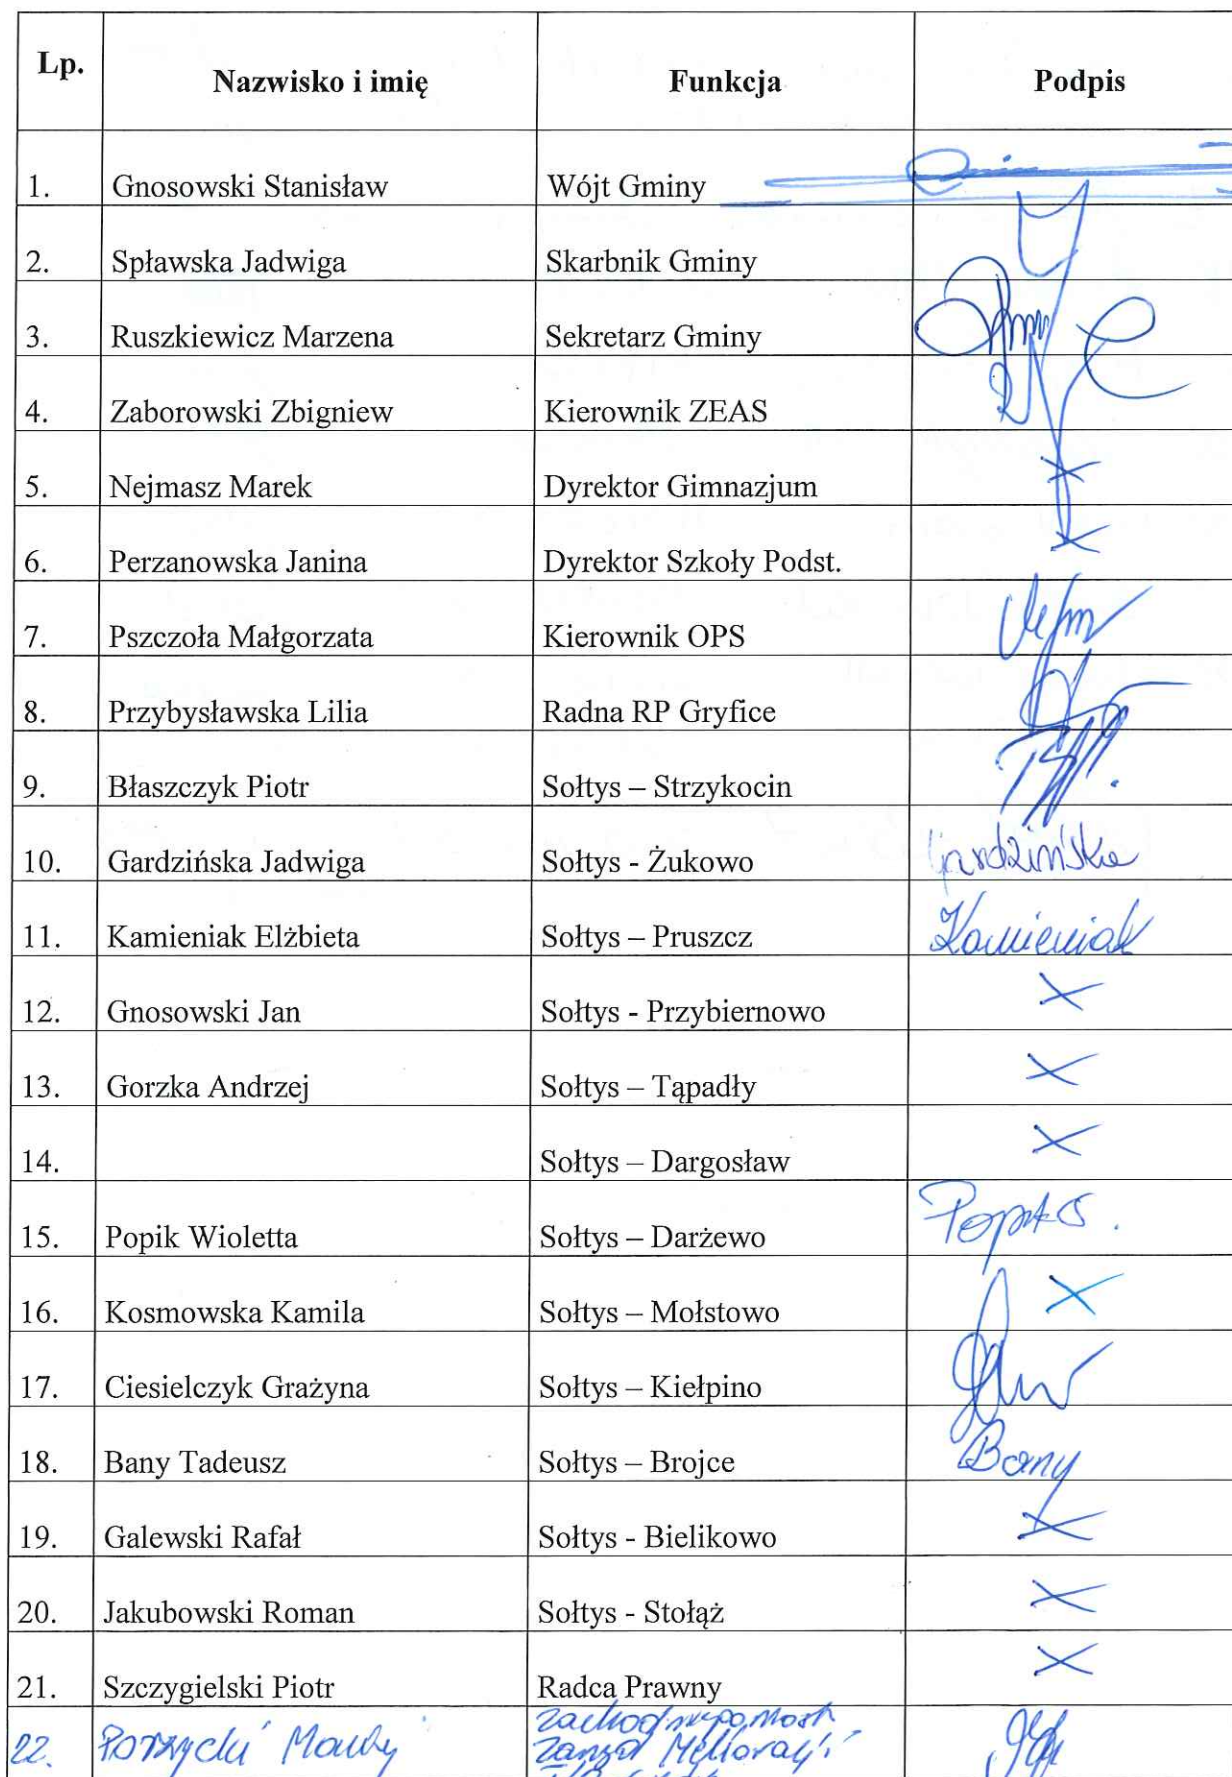 Lp. Nazwisko i imię Funkcja Podpis
1. Gnosowski Stanisław Wójt Gminy
2. Spławska Jadwiga Skarbnik Gminy
3. Ruszkiewicz Marzena Sekretarz Gminy
4. Zaborowski Zbigniew Kierownik ZEAS
5. Nejmasz Marek Dyrektor Gimnazjum X
6. Perzanowska Janina Dyrektor Szkoły Podst. X
7. Pszczoła Małgorzata Kierownik OPS
8. Przybysławska Lilia Radna RP Gryfice
9. Błaszczyk Piotr Sołtys – Strzykocin
10. Gardzińska Jadwiga Sołtys - Żukowo Gardzińska
11. Kamieniak Elżbieta Sołtys – Pruszcz Kamieniak
12. Gnosowski Jan Sołtys - Przybiernowo X
13. Gorzka Andrzej Sołtys – Tąpadły X
14. Sołtys – Dargosław X
15. Popik Wioletta Sołtys – Darżewo
16. Kosmowska Kamila Sołtys – Mołstowo X
17. Ciesielczyk Grażyna Sołtys – Kiełpino
18. Bany Tadeusz Sołtys – Brojce Bany
19. Galewski Rafał Sołtys - Bielikowo X
20. Jakubowski Roman Sołtys - Stołąż X
21. Szczygielski Piotr Radca Prawny X
22.